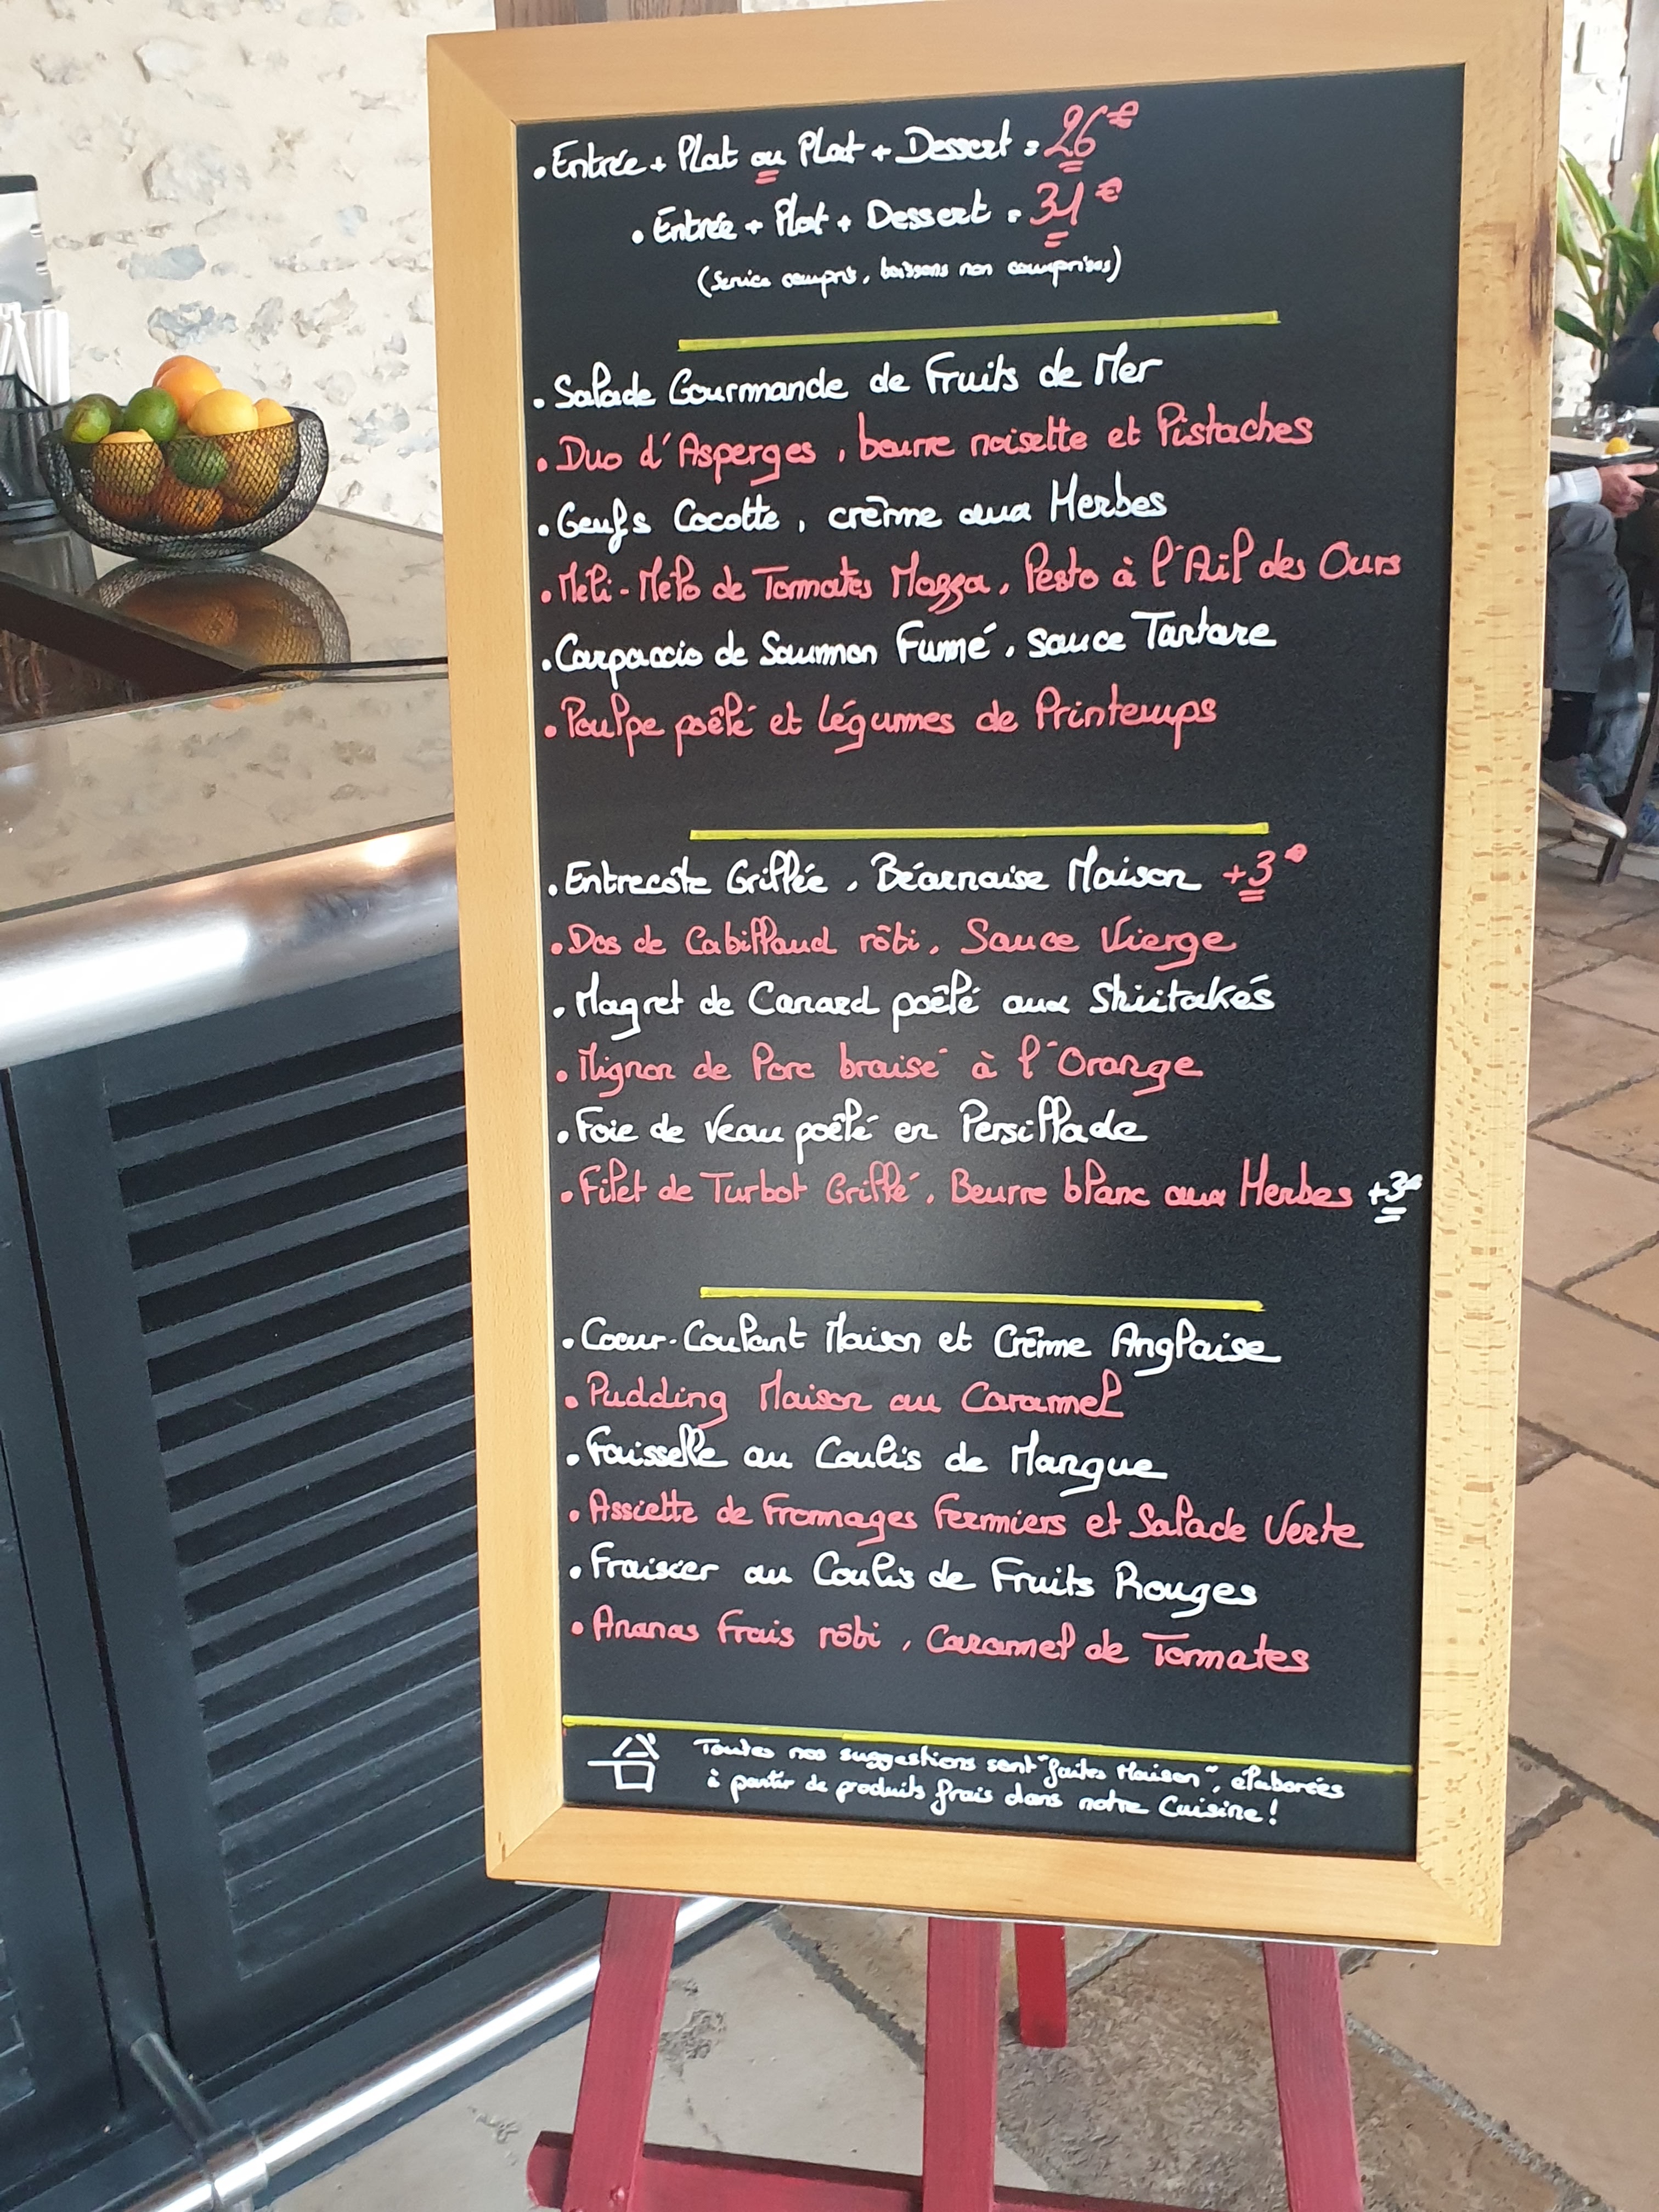 • Entrée + Plat ou Plat + Dessert = 26€
• Entrée + Plat + Dessert = 31€
(Service compris, boissons non comprises)
• Salade Gourmande de Fruits de Mer
• Duo d'Asperges, beurre noisette et Pistaches
• Oeufs Cocotte, crème aux Herbes
• Méli-Mélo de Tomates Mozza, Pesto à l'Ail des Ours
• Carpaccio de Saumon Fumé, sauce Tartare
• Poulpe poêlé et légumes de Printemps
• Entrecôte Grillée, Béarnaise Maison +3€
• Dos de Cabillaud rôti, Sauce Vierge
• Magret de Canard poêlé aux Shiitakés
• Mignon de Porc braisé à l'Orange
• Foie de Veau poêlé en Persillade
• Filet de Turbot Grillé, Beurre blanc aux Herbes +3€
• Coeur-Coulant Maison et Crème Anglaise
• Pudding Maison au Caramel
• Faisselle au Coulis de Mangue
• Assiette de Fromages Fermiers et Salade Verte
• Fraisier au Coulis de Fruits Rouges
• Ananas frais rôti, Caramel de Tomates
Toutes nos suggestions sont "faites Maison", élaborées
à partir de produits frais dans notre Cuisine!